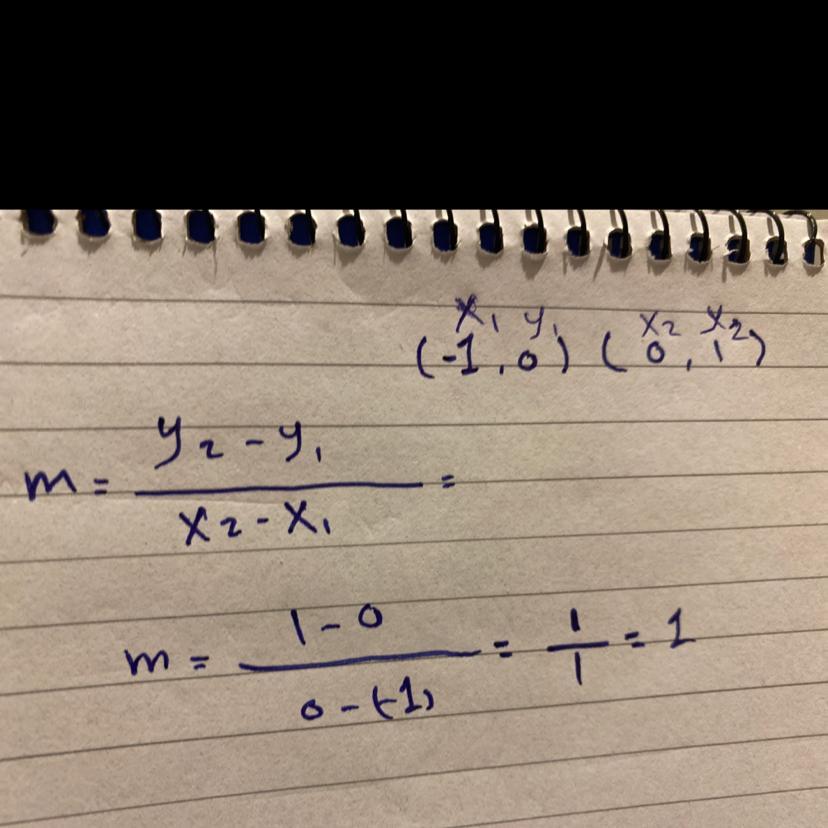 x₁ y₁ x₂ x₂
(-1, 0) (0, 1)
m = y₂ - y₁ / x₂ - x₁ =
m = 1 - 0 / 0 - (-1) = 1/1 = 1